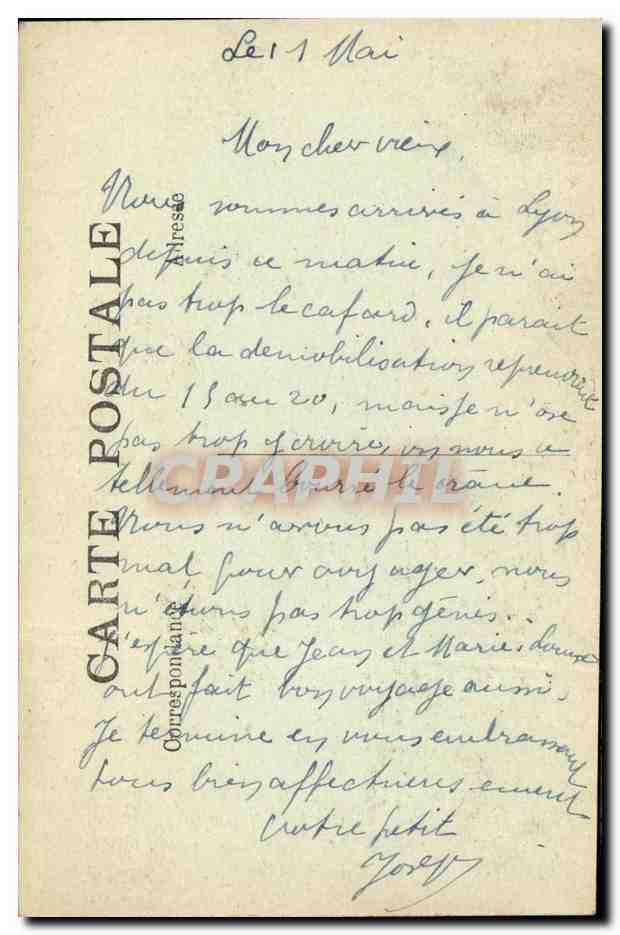 Le 11 Mai
Mon cher vieux,
Nous sommes arrivés à Lyon
depuis ce matin, je n'ai
pas trop le cafard, il parait
que la démobilisation reprendrait
du 15 au 20, mais je n'ose
pas trop y croire, on nous a
tellement bourré le crâne.
Nous n'avons pas été trop
mal pour voyager, nous
n'étions pas trop gênés.
J'espère que Jean et Marie-Louise
ont fait bon voyage aussi.
Je termine en vous embrassant
tous bien affectueusement
votre petit
Joseph
CARTE POSTALE
Correspondance
Adresse
CPAPHIL